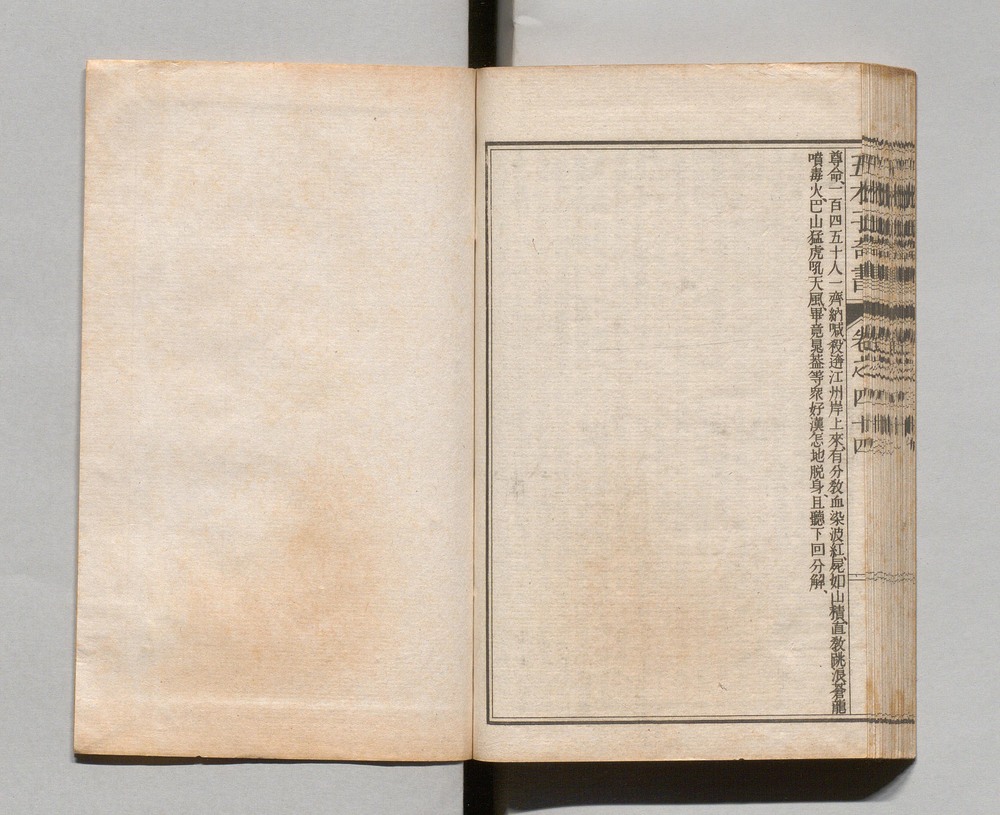 五才子奇書 卷之四十四
尊命、一百四五十人一齊吶喊、殺逩江州岸上來、有分敎血染波紅、屍如山積、直敎跳浪蒼龍
噴毒火、巴山猛虎吼天風、畢竟晁葢等衆好漢怎地脱身、且聽下回分解、